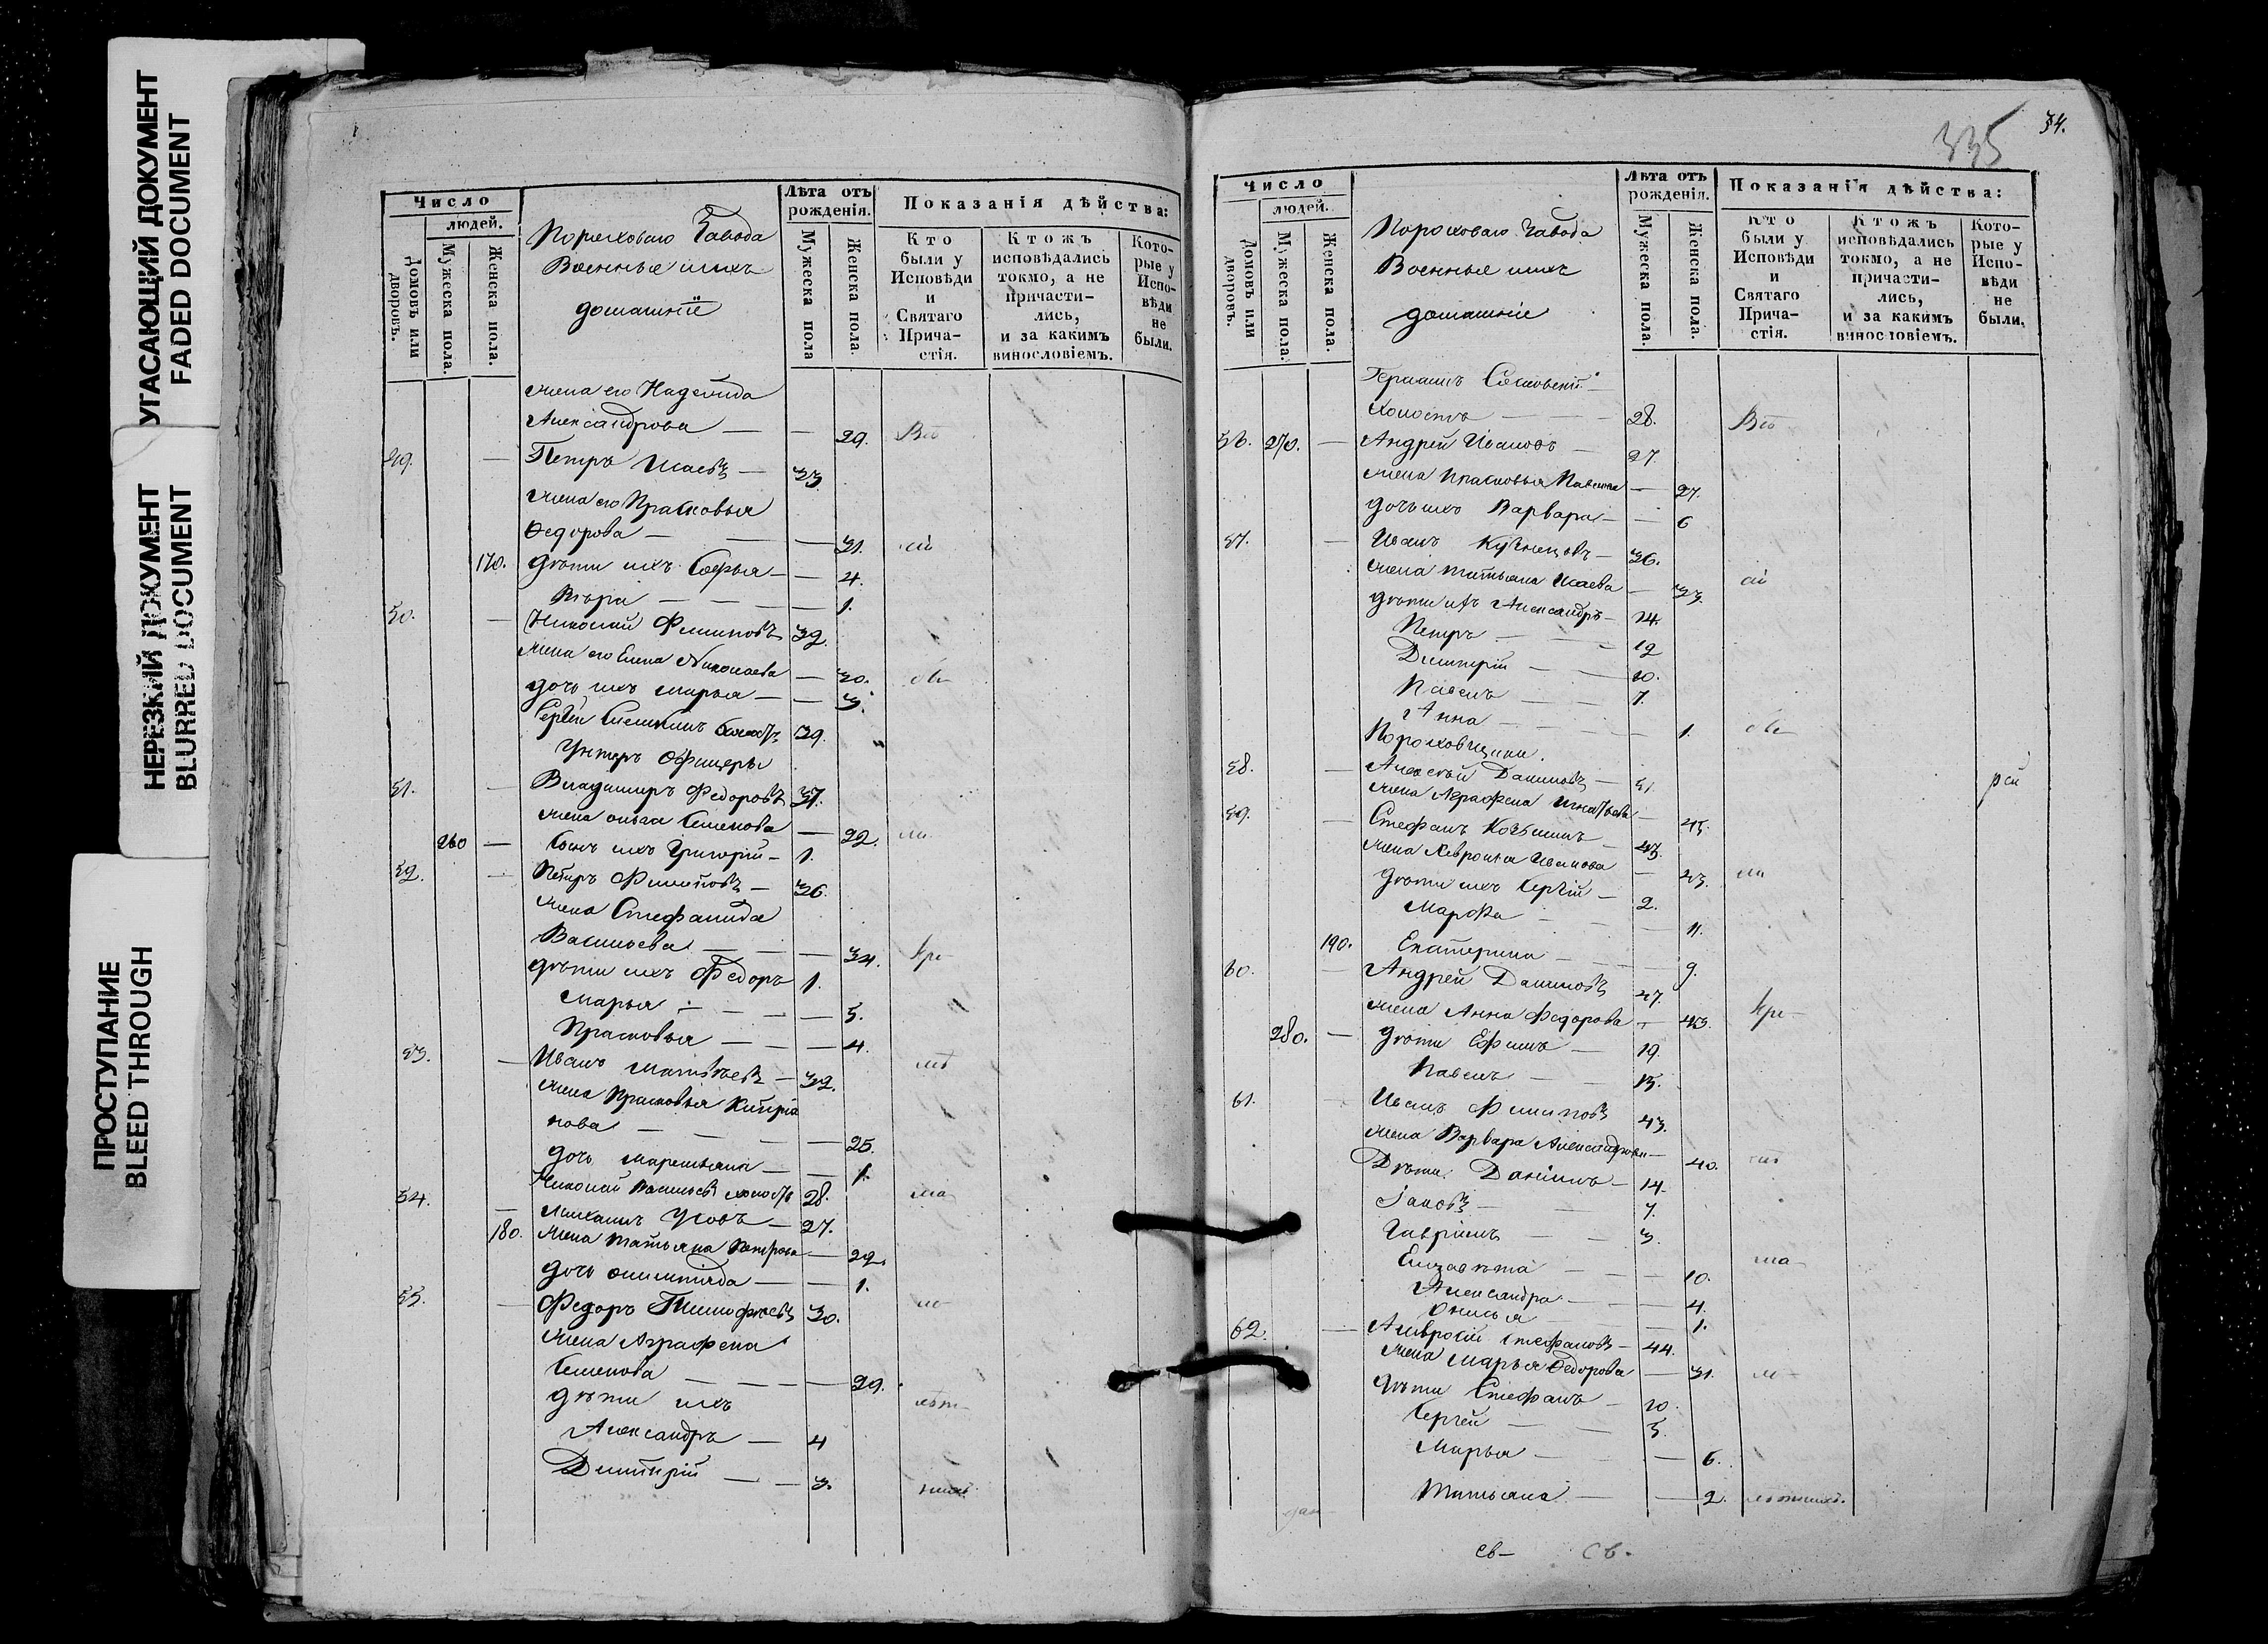 УГАСАЮЩИЙ ДОКУМЕНТ
FADED DOCUMENT
НЕРЕЗКИЙ ДОКУМЕНТ
BLURRED DOCUMENT
ПРОСТУПАНИЕ
BLEED THROUGH
Число
людей.
Домовъ или дворовъ.
Мужеска пола.
Женска пола.
Пороховаго Завода
Военные и ихъ
домашніе
Лѣта отъ рожденія.
Мужеска пола
Женска пола.
Показанія дѣйства:
Кто были у Исповѣди и Святаго Прича-стія.
Ктожъ исповѣдались токмо, а не причасти-лись, и за какимъ винословіемъ.
Кото-рые у Испо-вѣди не были.
жена его Надежда
Александрова — — 29.
49. — Петръ Исаевъ — 33
жена его Прасковья
Федорова — — 31.
170. дѣти ихъ Софья — — 4.
Вѣра — — — 1.
50. — Николай Филиповъ 32.
жена его Елена Николаева — 30.
дочь ихъ Марья — — 3.
Сергѣй 29.
Унтеръ Офицеры
51. — Владимиръ Федоровъ 37.
жена Ольга Семенова — 22.
260 — Сынъ ихъ Григорій — 1.
52. — Петръ Филиповъ — 36.
жена Стефанида
Васильева — — 34.
дѣти ихъ Федоръ 1.
Марья — — — 5.
Прасковья — — — 4.
53. — Иванъ Матвѣевъ — 32.
жена Прасковья Кипріа
нова — — — 25.
дочь — — 1.
Николай Васильевъ холостъ 28.
54. — Михаилъ Усовъ — 27.
180. жена Татьяна Петрова — 22.
дочь Олимпіада — — 1.
55. — Федоръ Тимофѣевъ 30.
жена Аграфена
Семенова — — — 29.
дѣти ихъ
Александръ — 4
Димитрій — — 3.
335
34.
Число
людей.
Домовъ или дворовъ.
Мужеска пола.
Женска пола.
Пороховаго Завода
Военные ихъ
домашніе
Лѣта отъ рожденія.
Мужеска пола.
Женска пола.
Показанія дѣйства:
Кто были у Исповѣди и Святаго Прича-стія.
Ктожъ исповѣдались токмо, а не причасти-лись, и за какимъ винословіемъ.
Кото-рые у Испо-вѣди не были.
Германъ
холостъ — — 28.
56. 270. — Андрей Ивановъ — 27.
жена Прасковья Павлова — 27.
дочь ихъ Варвара — — 6
57. — Иванъ Кузнецовъ — 36.
жена Татьяна Исаева — 33.
дѣти ихъ Александръ — 14.
Петръ — — 12
Димитрій — — 10.
Павелъ — — 7.
Анна — — — 1.
Пороховщики.
58. — Алексѣй Даниловъ — 51.
жена Аграфена Игнатьева — 45.
59. — Стефанъ — 45.
жена Ивановна — 43.
дѣти ихъ Сергѣй — 2.
Марѳа — — 11.
190. Екатерина — — 9.
60. — Андрей Даниловъ 47.
жена Анна Федорова — 43.
280. — дѣти Ефимъ — 19.
Павелъ — — 15.
61. — Иванъ Филиповъ 43.
жена Варвара Александрова — 40.
Дѣти Даніилъ — 14.
Іаковъ — — 7.
Гавріилъ — — 3.
Елизавета — — 10.
Александра — — 4.
— 1.
62. — Амвросій Стефановъ — 44.
жена Марья Федорова — 31.
дѣти Стефанъ — 10.
Сергѣй — — 5.
Марья — — 6.
Татьяна — — 2.
св— св.